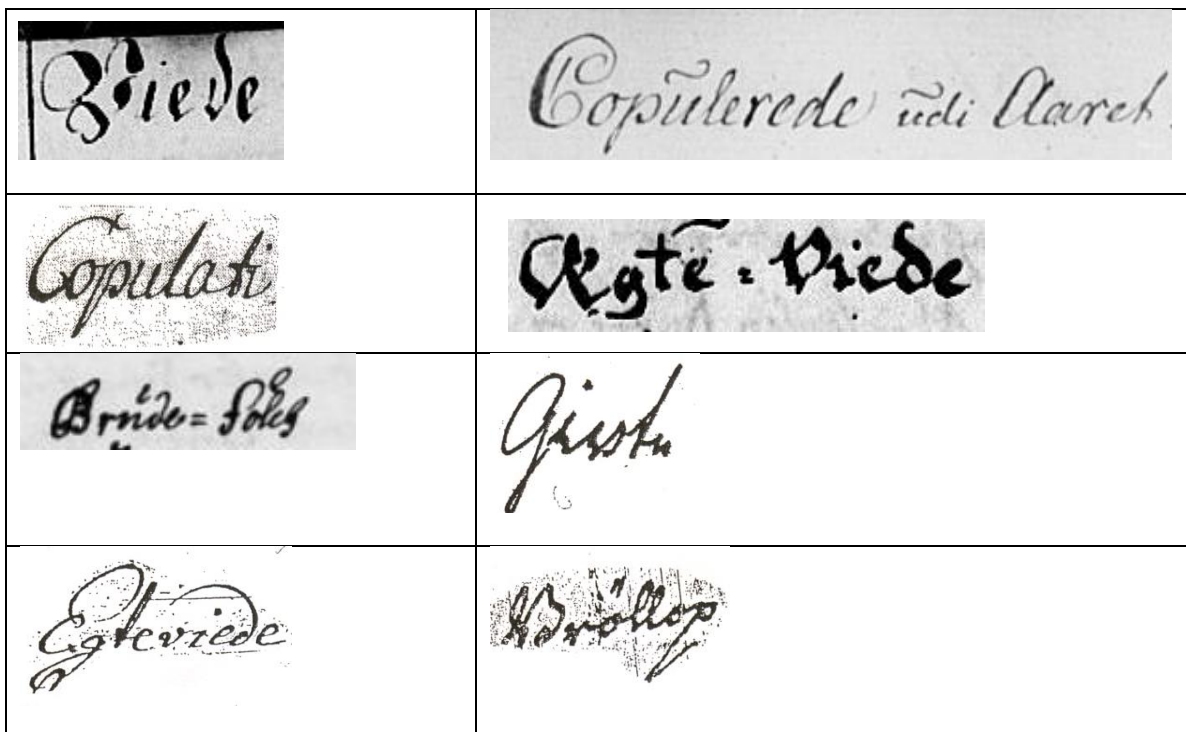 Viede
Copūlerede ūdi Aaret
Copulati
Ægtē = Viede
Brude=
Egteviede
Bröllop